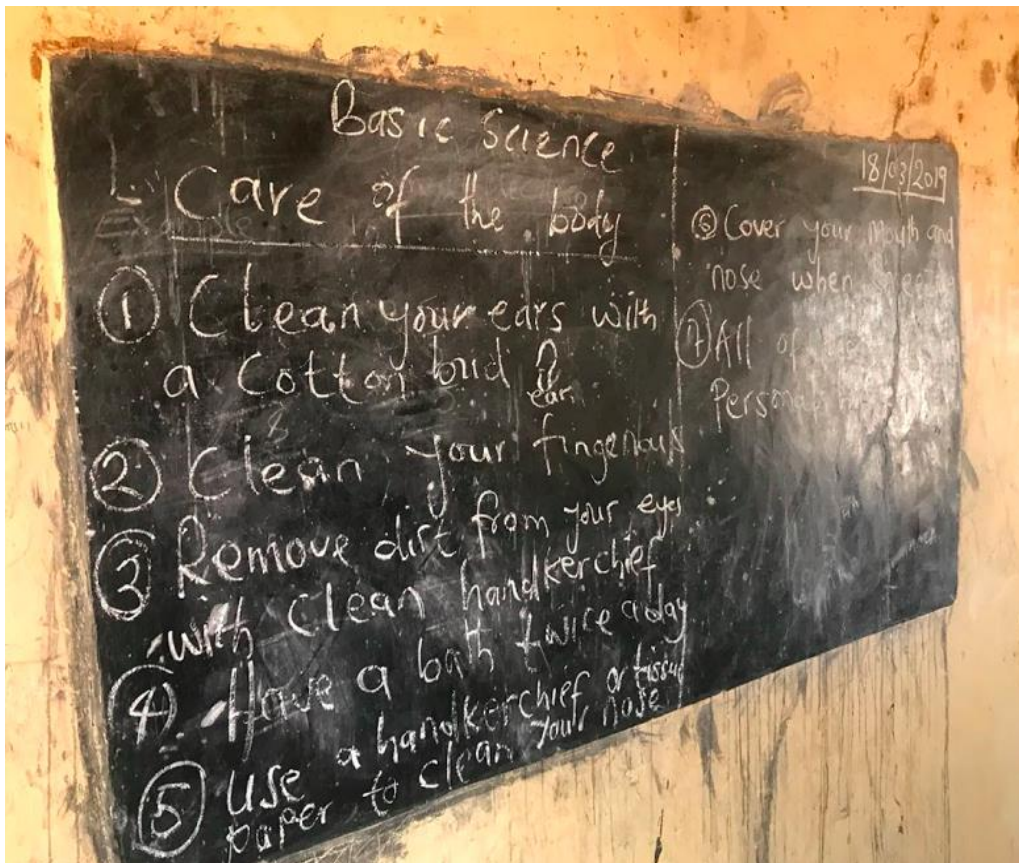 Basic Science
Care of the body
① Clean your ears with
a Cotton bud
ear
② Clean your fingenails
③ Remove dirt from your eyes
with Clean handkerchief
④ Have a bath twice a day
⑤ Use a handkerchief or tissue
paper to clean your nose
18/03/2019
⑥ Cover your mouth and
nose when
⑦ All of